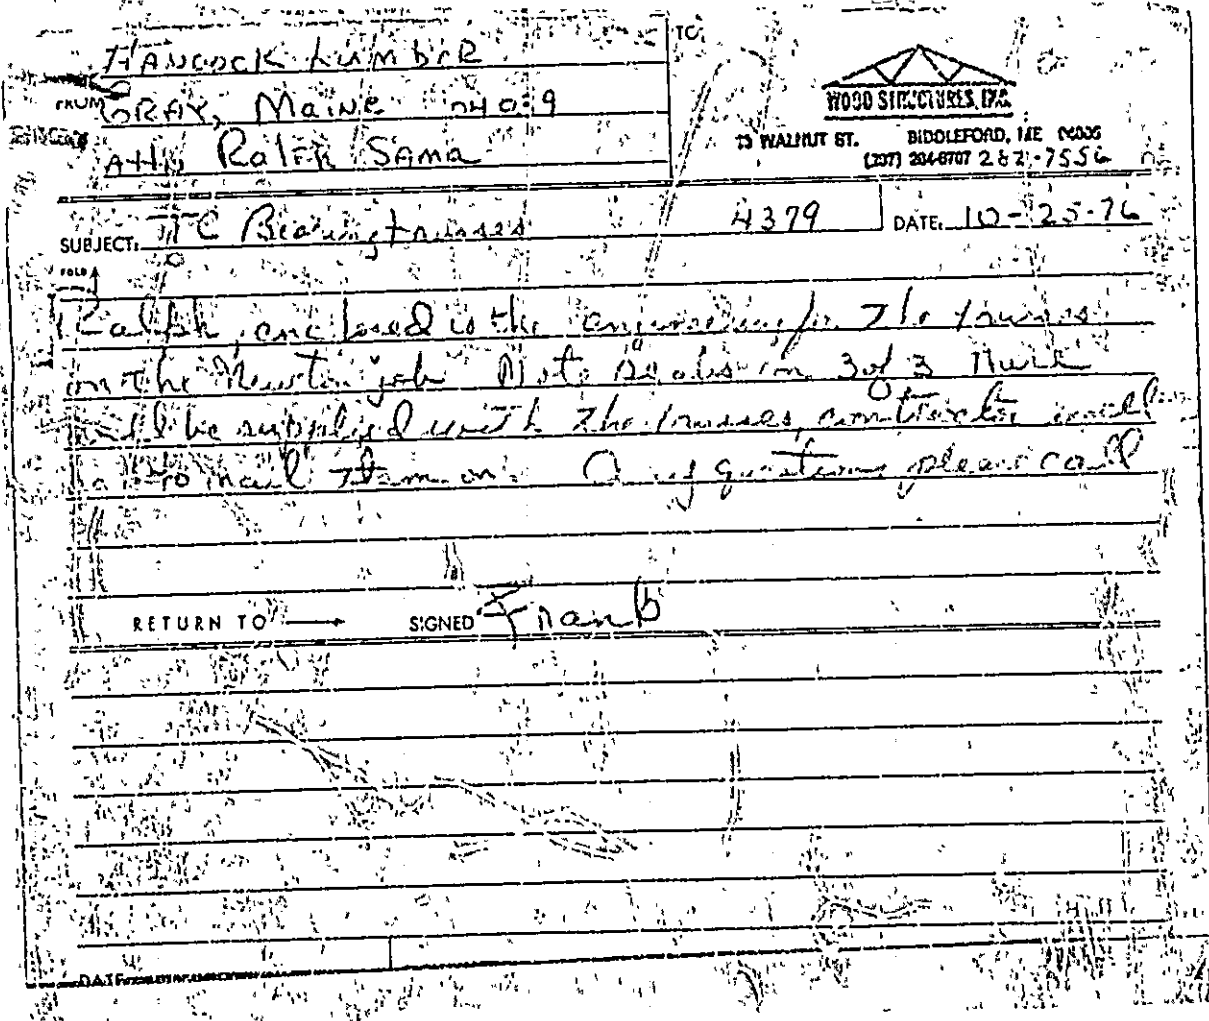 HANCOCK LUMBER
TO:
FROM GRAY, MAINE
Attn. Ralph Sama
WOOD STRUCTURES, INC.
73 WALNUT ST. BIDDLEFORD, ME
282-7556
SUBJECT: TC Bearing trusses 4379 DATE: 10-25-76
FOLD
Ralph, enclosed is the engineering for the trusses
on the job Note on 3 of 3
will be supplied with the trusses, contractor will
to nail them on. Any questions please call
RETURN TO SIGNED Frank
DATE